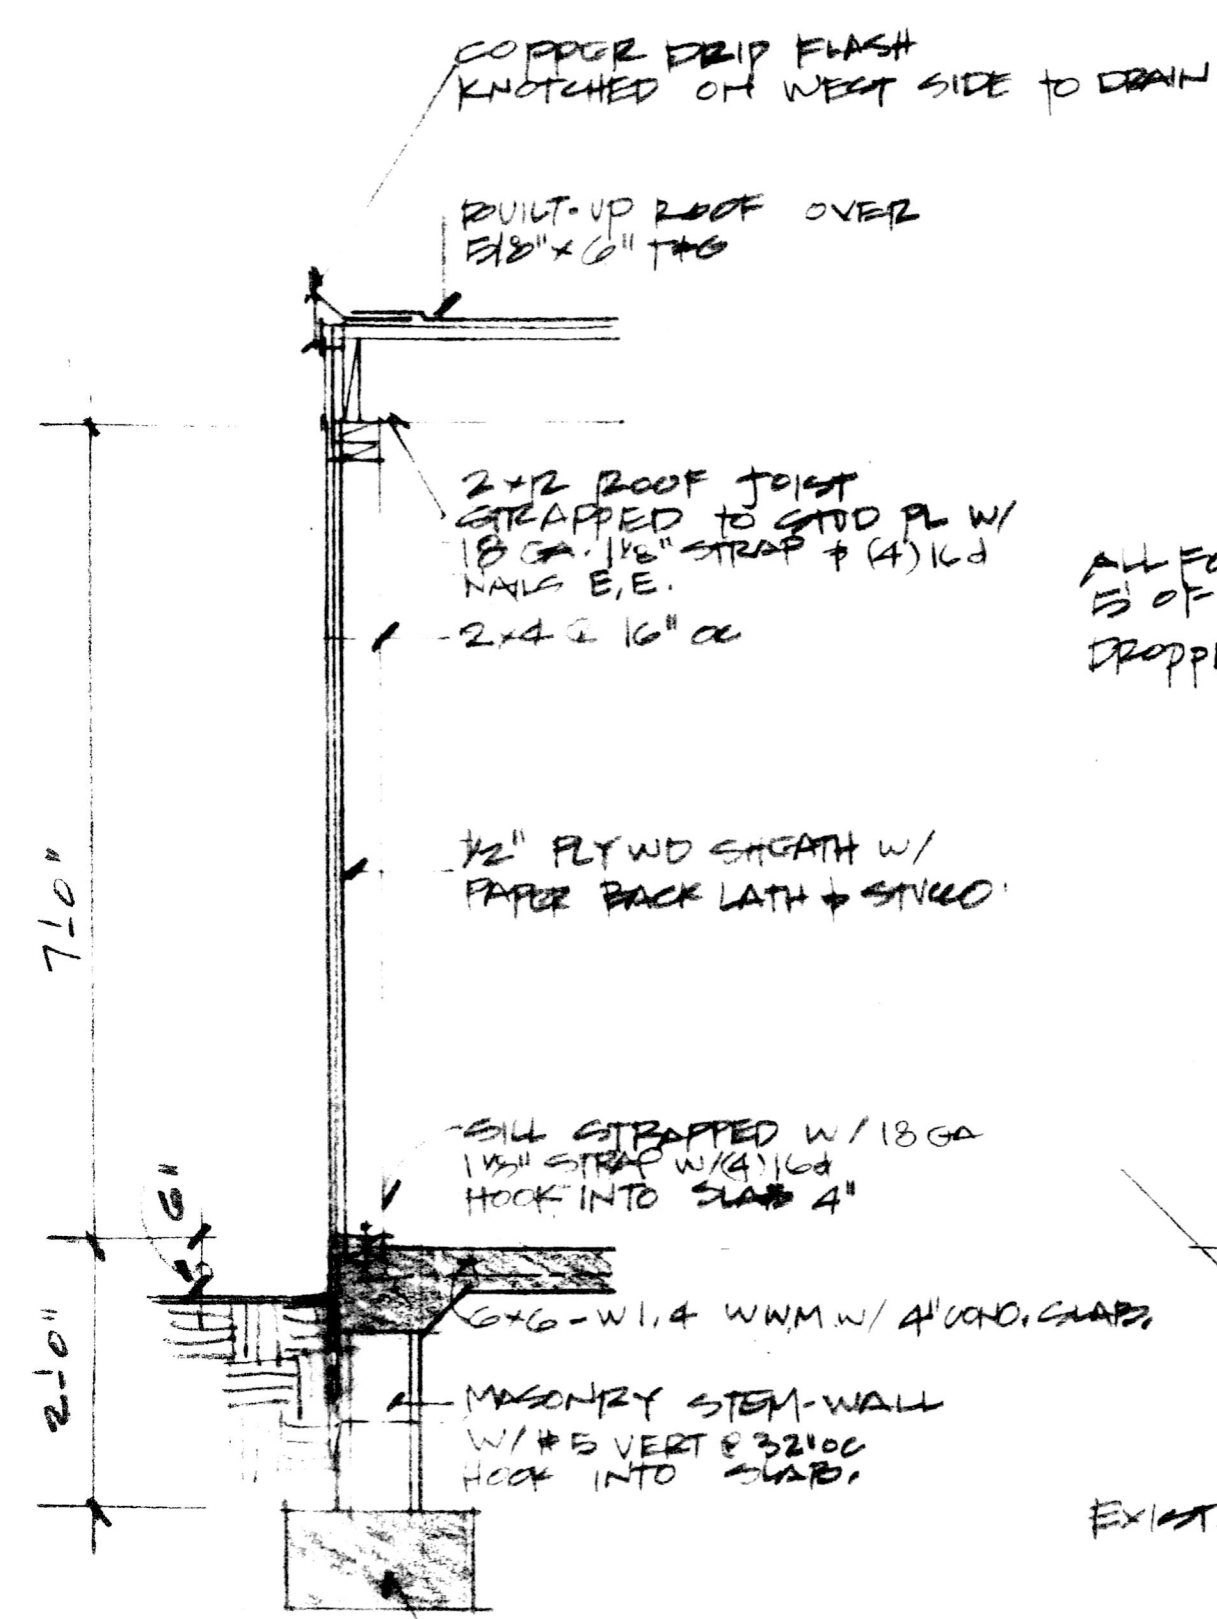 COPPER DRIP FLASH
KNOTCHED ON WEST SIDE TO DRAIN
BUILT-UP ROOF OVER
5/8" x 6" T&G
2x12 ROOF JOIST
STRAPPED TO STUD PL W/
18 GA. 1 1/8" STRAP & (4) 16d
NAILS E.E.
2x4 @ 16" OC
ALL FO
5' OF
DROPP
1/2" PLYWD SHEATH W/
PAPER BACK LATH & STUCCO.
7'-0"
SILL STRAPPED W/ 18 GA
1 1/8" STRAP W/(4) 16d
HOOK INTO SLAB 4"
6"
6x6-W1.4 WWM W/ 4" CONC. SLAB.
2'-0"
MASONRY STEM-WALL
W/ #5 VERT @ 32" OC
HOOK INTO SLAB.
EXIST